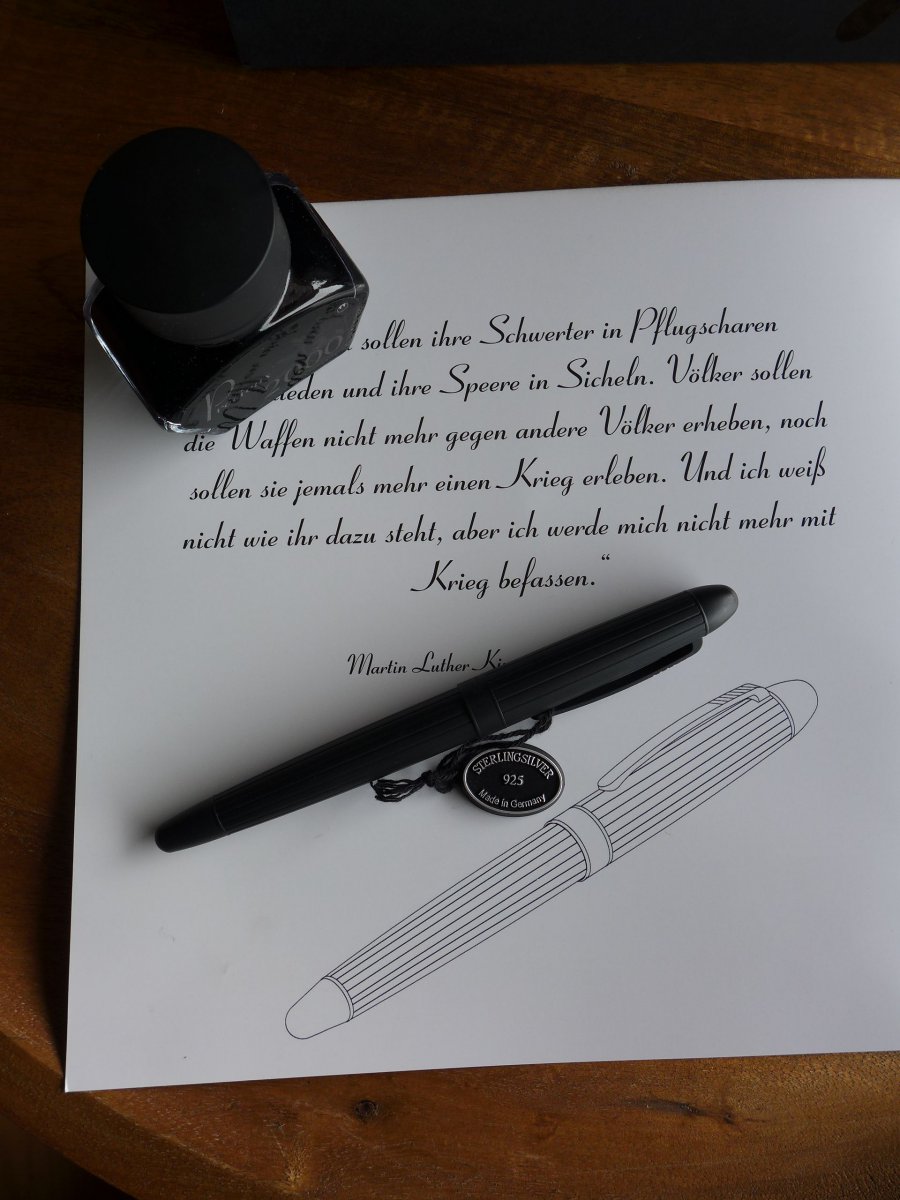 sollen ihre Schwerter in Pflugscharen
und ihre Speere in Sicheln. Völker sollen
die Waffen nicht mehr gegen andere Völker erheben, noch
sollen sie jemals mehr einen Krieg erleben. Und ich weiß
nicht wie ihr dazu steht, aber ich werde mich nicht mehr mit
Krieg befassen.“
Martin Luther
STERLINGSILVER
925
Made in Germany